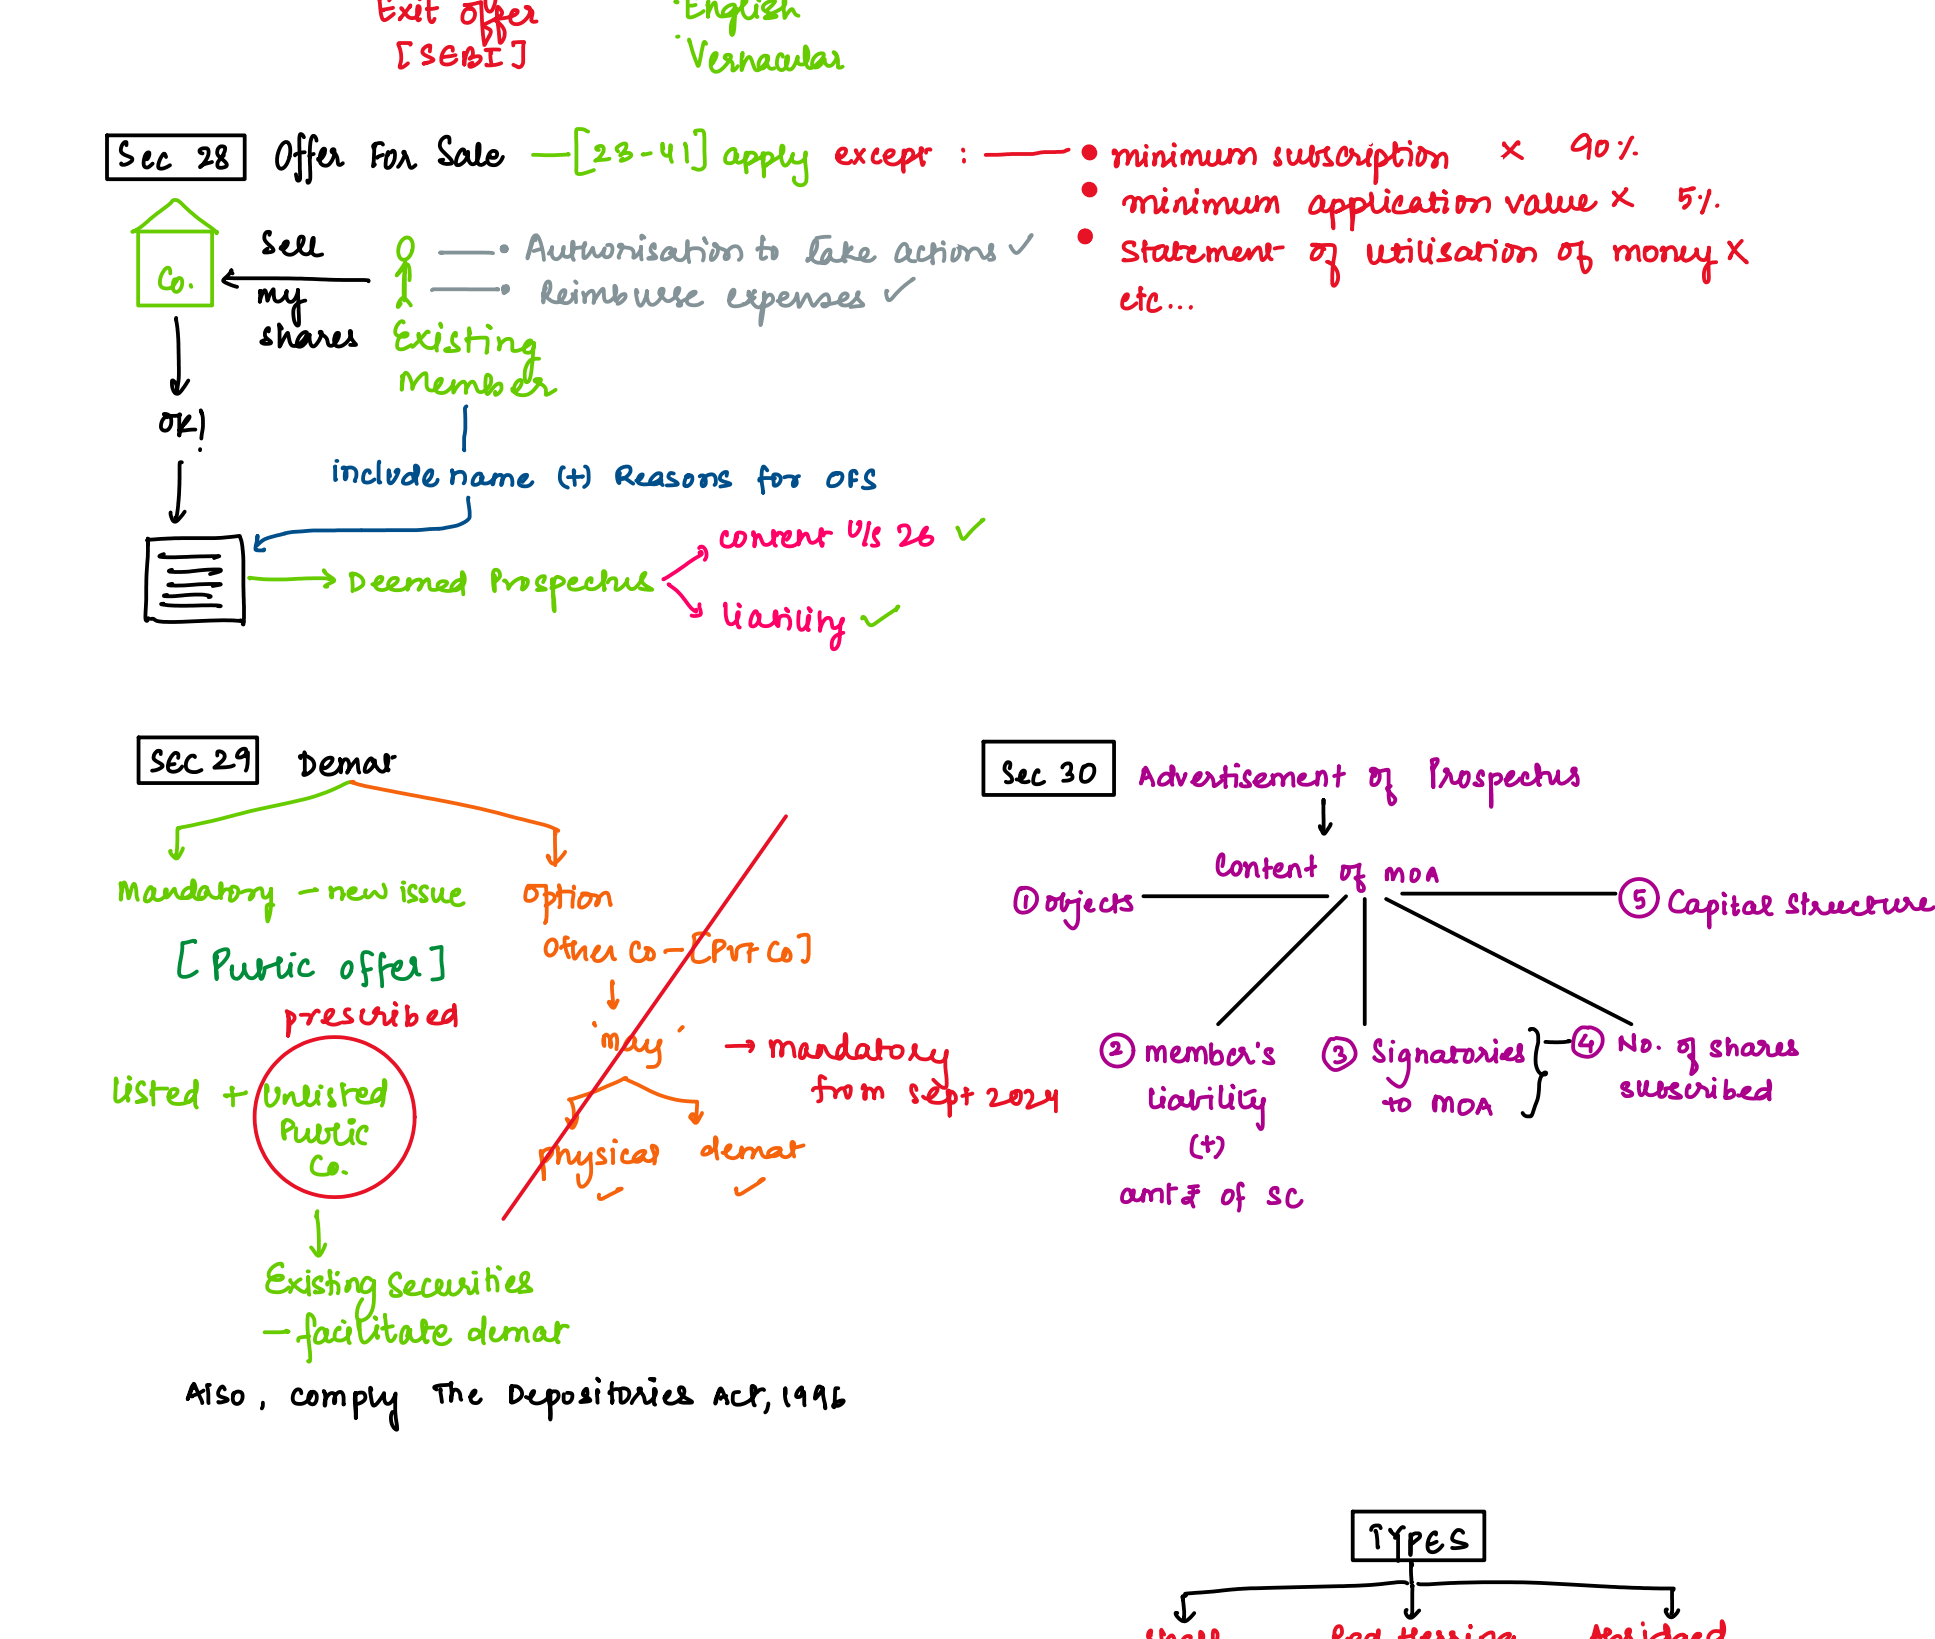 Exit offer
[SEBI]
English
Vernacular
Sec 28 Offer For Sale — [23-41] apply except :
• minimum subscription × 90%
• minimum application value × 5%
• Statement of utilisation of money ×
etc...
Co.
Sell
my
shares
• Authorisation to take actions ✓
• Reimburse expenses ✓
Existing
Member
OK!
include name (+) Reasons for OFS
Deemed Prospectus
content U/s 26 ✓
liability ✓
SEC 29 Demat
Mandatory - new issue
[Public offer]
prescribed
listed + Unlisted
Public
Co.
Existing Securities
- facilitate demat
Option
Other Co - [PVT CO]
'may'
physical ✓
demat ✓
→ mandatory
from sept 2024
Also, comply The Depositories Act, 1996
Sec 30 Advertisement of Prospectus
Content of MOA
① objects
② member's
liability
(+)
amt ₹ of SC
③ Signatories
to MOA
④ No. of shares
subscribed
⑤ Capital Structure
TYPES
Shelf
Red Herring
Abridged